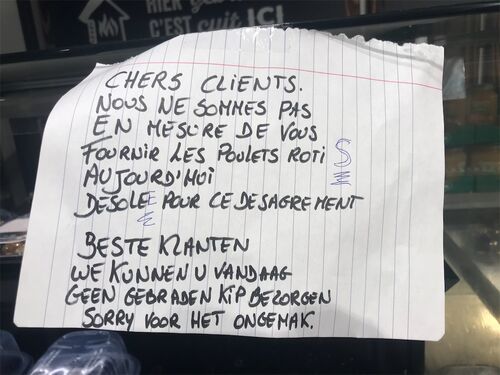 HIER
C'EST cuit ICI
CHERS CLIENTS.
NOUS NE SOMMES PAS
EN MESURE DE VOUS
FOURNIR LES POULETS ROTI S
AUJOURD'HUI
DESOLE E POUR CE DESAGREMENT
BESTE KLANTEN
WE KUNNEN U VANDAAG
GEEN GEBRADEN KIP BEZORGEN
SORRY VOOR HET ONGEMAK.